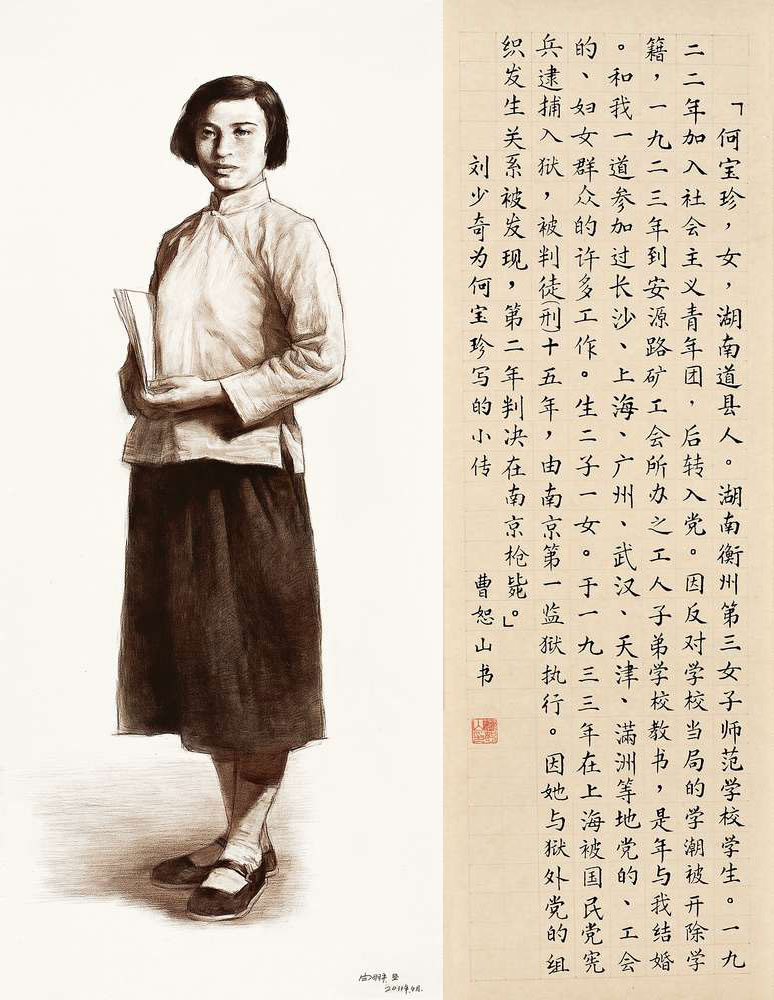 「何宝珍，女，湖南道县人。湖南衡州第三女子师范学校学生。一九
二二年加入社会主义青年团，后转入党。因反对学校当局的学潮被开除学
籍，一九二三年到安源路矿工会所办之工人子弟学校教书，是年与我结婚
。和我一道参加过长沙、上海、广州、武汉、天津、满洲等地党的、工会
的、妇女群众的许多工作。生二子一女。于一九三三年在上海被国民党宪
兵逮捕入狱，被判徒(刑)十五年，由南京第一监狱执行。因她与狱外党的组
织发生关系被发现，第二年判决在南京枪毙。」
刘少奇为何宝珍写的小传 曹恕山书
2011年4月.